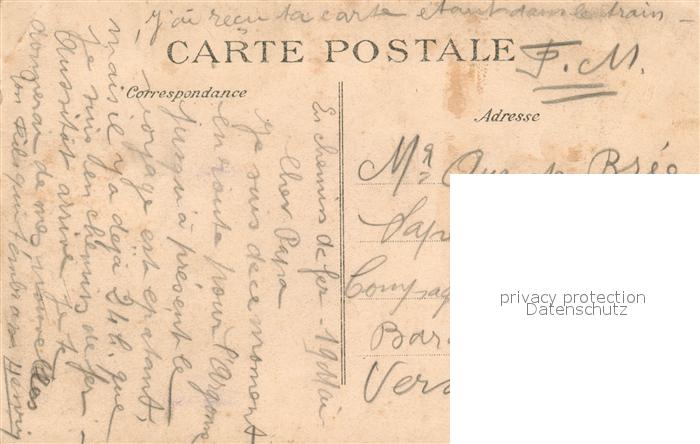 J'ai reçu ta carte étant dans le train -
CARTE POSTALE
F. M.
Correspondance
Adresse
En chemin de fer - 19 Mai
Cher Papa
Je suis de ce moment
en route pour l'Argonne
jusqu'à présent le
voyage est epatant,
mais il y a déjà 24h. que
je suis en chemin de fer -
Aussitôt arrivé je te
donnerai de mes nouvelles
Un fils qui t'embrasse Henri
Mr
Sape
Compag
Bar
Verd
privacy protection
Datenschutz